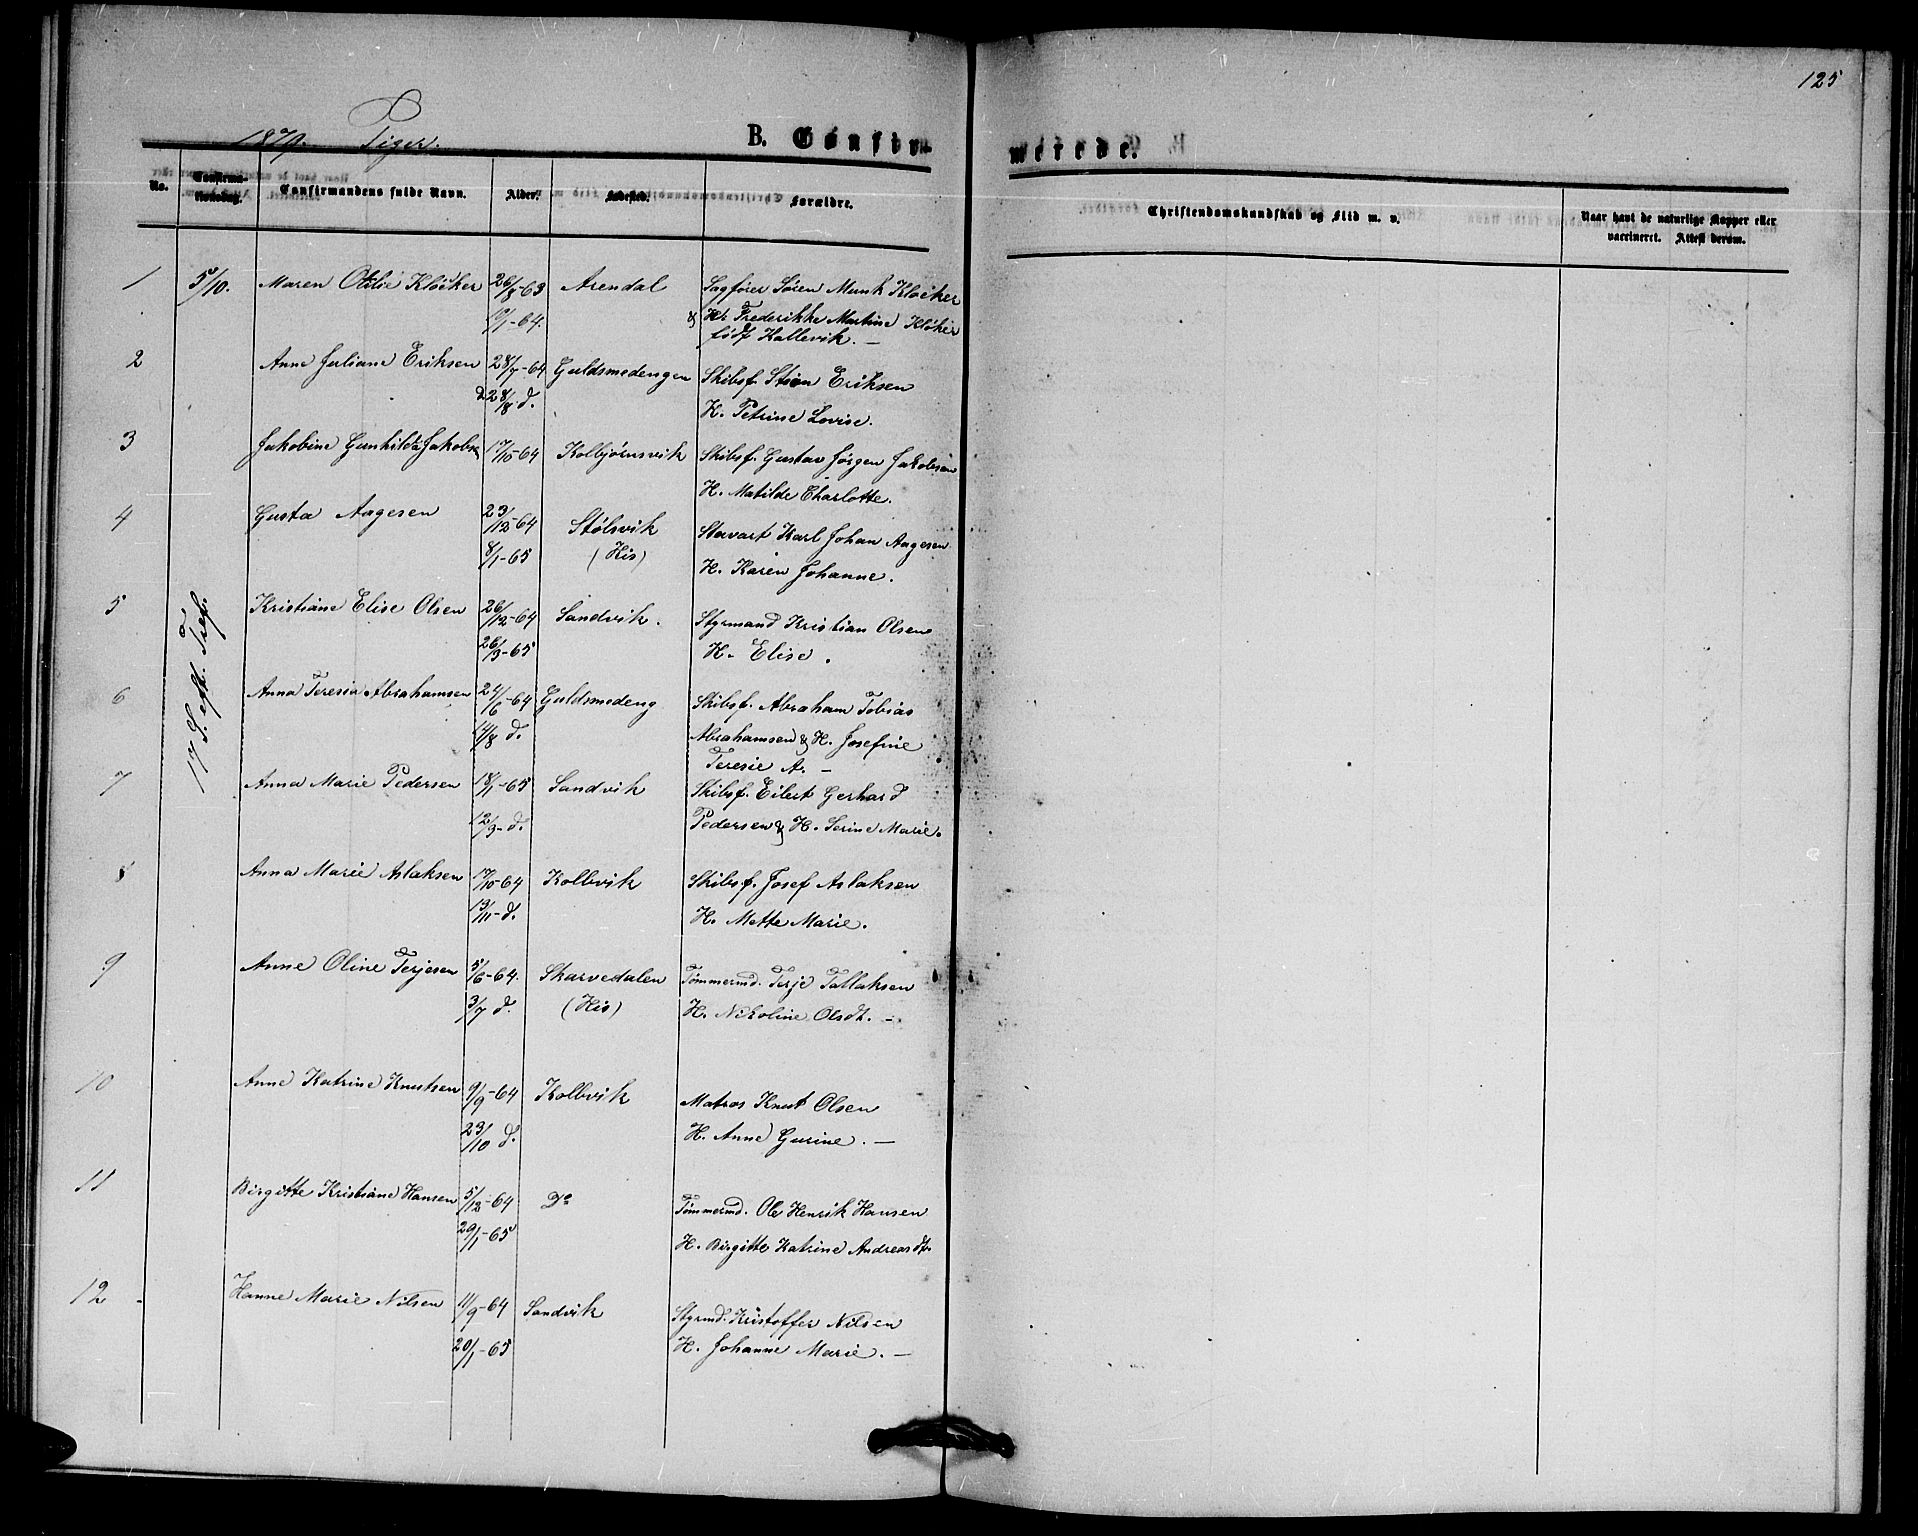 125
1879. Piger.
B. Confirmerede.
No. Confirmationsdag. Confirmandens fulde Navn. Alder. Fødested. Forældre. Christendomskundskab og Flid m. v. Naar havt de naturlige Kopper eller vaccineret. Attest derom.
1 5/10. Maren Otilie Kløcker 26/8-63 Arendal Sagfører Søren Munk Kløcker
10/1-64. & H. Frederikke Martine Kløker
født Kallevik. —
2 Anne Juliane Eriksen 28/7-64 Guldsmedengen Skibsf. Stian Eriksen
d. 28/8 d. H. Petrine Lovise.
3 Jakobine Gunhilda Jakobs 17/10-64 Kolbjørnsvik Skibsf. Gustav Jørgen Jakobsen
H. Matilde Charlotte.
4 Gusta Aagesen 23/12-64 Stølsvik Stuvart Karl Johan Aagesen
8/1-65 (His) H. Karen Johanne.
17 S. eft. Tref.
5 Kristiane Elise Olsen 26/12-64 Sandvik. Styrmand Kristian Olsen
26/3-65 H. Elise.
6 Anna Teresia Abrahamsen 24/6-64 Guldsmedeng Skibsf. Abraham Tobias
14/8 d. Abrahamsen & H. Josefine
Teresie A. —
7 Anna Marie Pedersen 18/1-65 Sandvik Skibsf. Eilert Gerhard
12/3-d. Pedersen & H. Serine Marie.
8 Anna Marie Aslaksen 17/10-64 Kolbvik Skibsf. Josef Aslaksen
13/11-d. H. Mette Marie.
9 Anne Oline Terjesen 5/6-64. Skarvedalen Tømmermd. Terje Tallaksen
3/7 d. (His) H. Nikoline Olsdt. —
10 Anne Katrine Knutsen 9/9-64 Kolbvik Matros Knut Olsen
23/10 d. H. Anne Gurine. —
11 Birgitte Kristiane Hansen 5/12-64 Do Tømmermd. Ole Henrik Hansen
29/1-65 H. Birgitte Katrine Andreasdtr
12 Hanne Marie Nilsen 11/9-64 Sandvik Styrmd. Kristoffer Nilsen
20/1-65 H. Johanne Marie. —